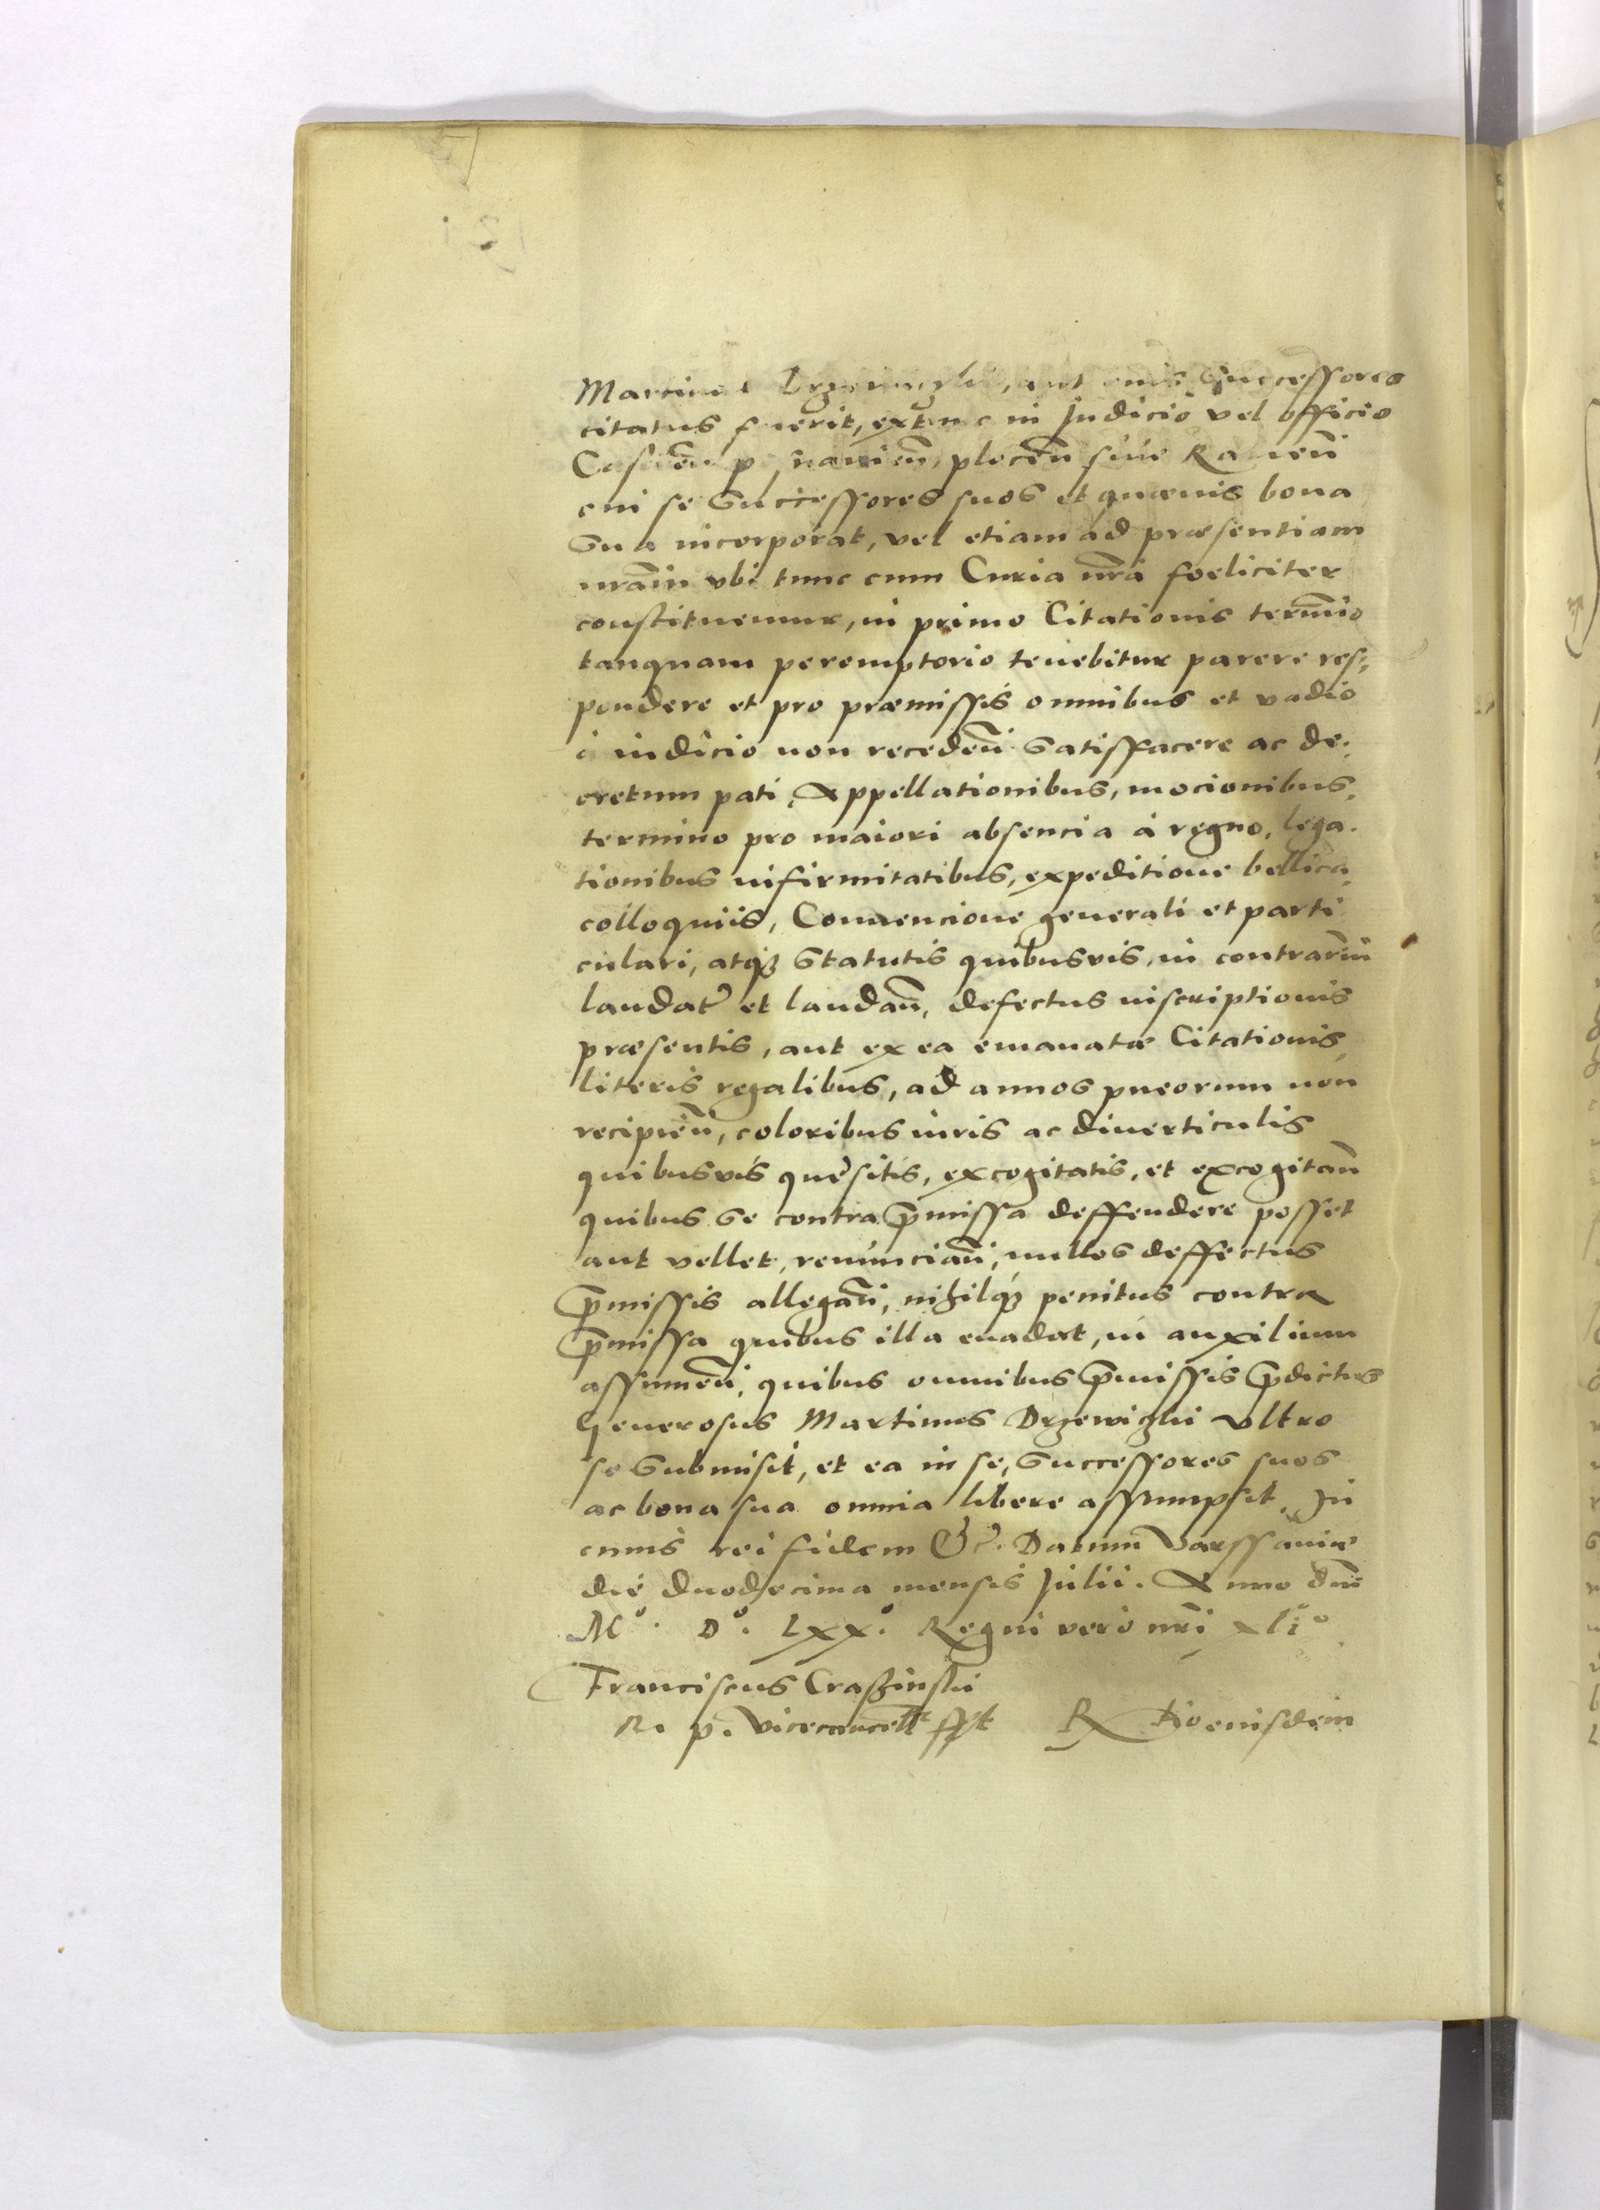 Martinus Drzewiczki, aut eius Successores
citatus fuerit, extunc in Judicio vel officio
Castren posnanien, plocen siue Rauen
cui se Successores suos et quæuis bona
Sua incorporat, vel etiam ad præsentiam
nram vbi tunc cum Curia nra foeliciter
constituemur, in primo Citationis termio
tanquam peremptorio tenebitur parere res,
pondere et pro præmissis omnibus et vadio
à iudicio non receden Satisfacere ac de,
cretum pati, Appellationibus, mocionibus,
termino pro maiori absencia à regno, lega,
tionibus infirmitatibus, expeditione bellica,
colloquiis, Conuencione generali et parti
culari, atq; Statutis quibusvis, in contrarm
laudat et laudan, defectus inscriptionis
præsentis, aut ex ea emanatæ Citationis,
literis regalibus, ad annos pueorum non
recipien, coloribus iuris ac diuerticulis
quibusvis quesitis, excogitatis, et excogitan
quibus Se contra pmissa deffendere posset
aut vellet, renuncian, nullos deffectus
pmissis allegan, nihilq; penitus contra
pmissa quibus illa euadat, in auxilium
assumen, quibus omnibus pmissis pdictus
Generosus Martinus Drzewiczki vltro
se Submisit, et ea in se, Successores suos
ac bona sua omnia libere assumpsit. In
cuius rei fidem &c. Datum Varssauiæ
die duodecima mensis Julii. Anno dni
M°. D°. Lxx°. Regni vero nri xli°
Franciscus Crasżinski
R. p. Vicecancell sspt R Eiusdem